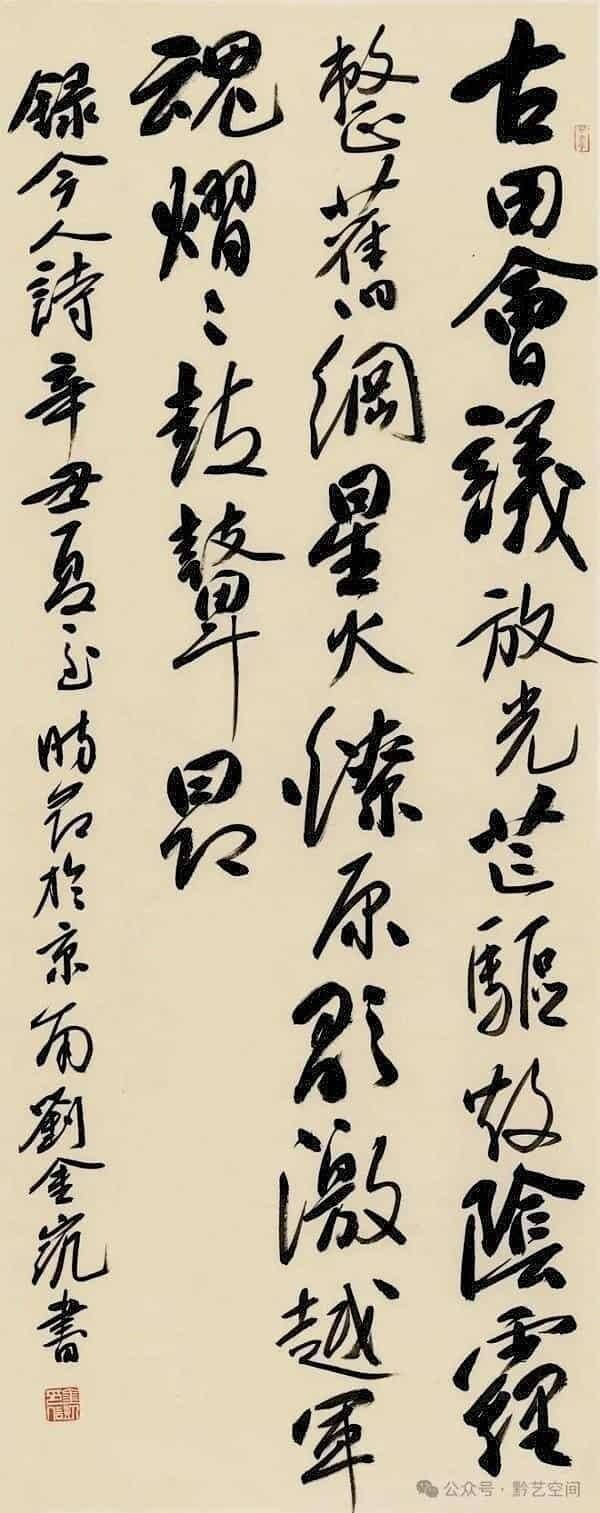 古田會議放光芒驅散陰霾
整舊綱星火燎原歌激越軍
魂熠々鼓鼙昂
錄今人詩辛丑夏至時節於京南劉金書
公众号 · 黔艺空间